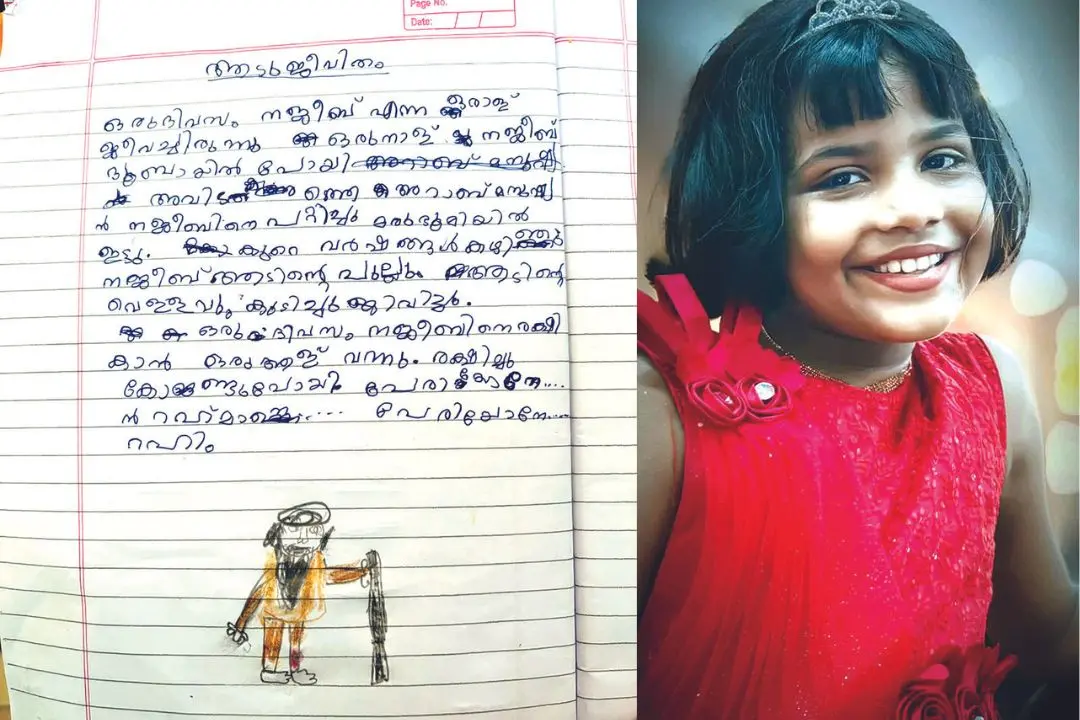 Page No.
Date:
ആടുജീവിതം
ഒരു ദിവസം നജീബ് എന്ന ഒരാള്
ജീവച്ചിരുന്നു ഒരുനാള് നജീബ്
ദുബായിൽ പോയി
അവിടത്തെ അറാബ് മനുഷ്യ
ൻ നജീബിനെ പറ്റിച്ചു മരുഭൂമിയിൽ
ഇട്ടു. കുറെ വർഷങ്ങൾ കഴി
നജീബ് ആടിന്റെ പുല്ലും ആടിന്റെ
വെള്ളവും കുടിച്ചു ജീവിച്ചു.
ഒരു ദിവസം നജീബിനെ രക്ഷി
കാൻ ഒരു ആള് വന്നു. രക്ഷിച്ചു
കോണ്ടുപോയി പേരിയോനേ....
ൻ റഹ്മാ...... പേരിയോനേ....
റഹിം